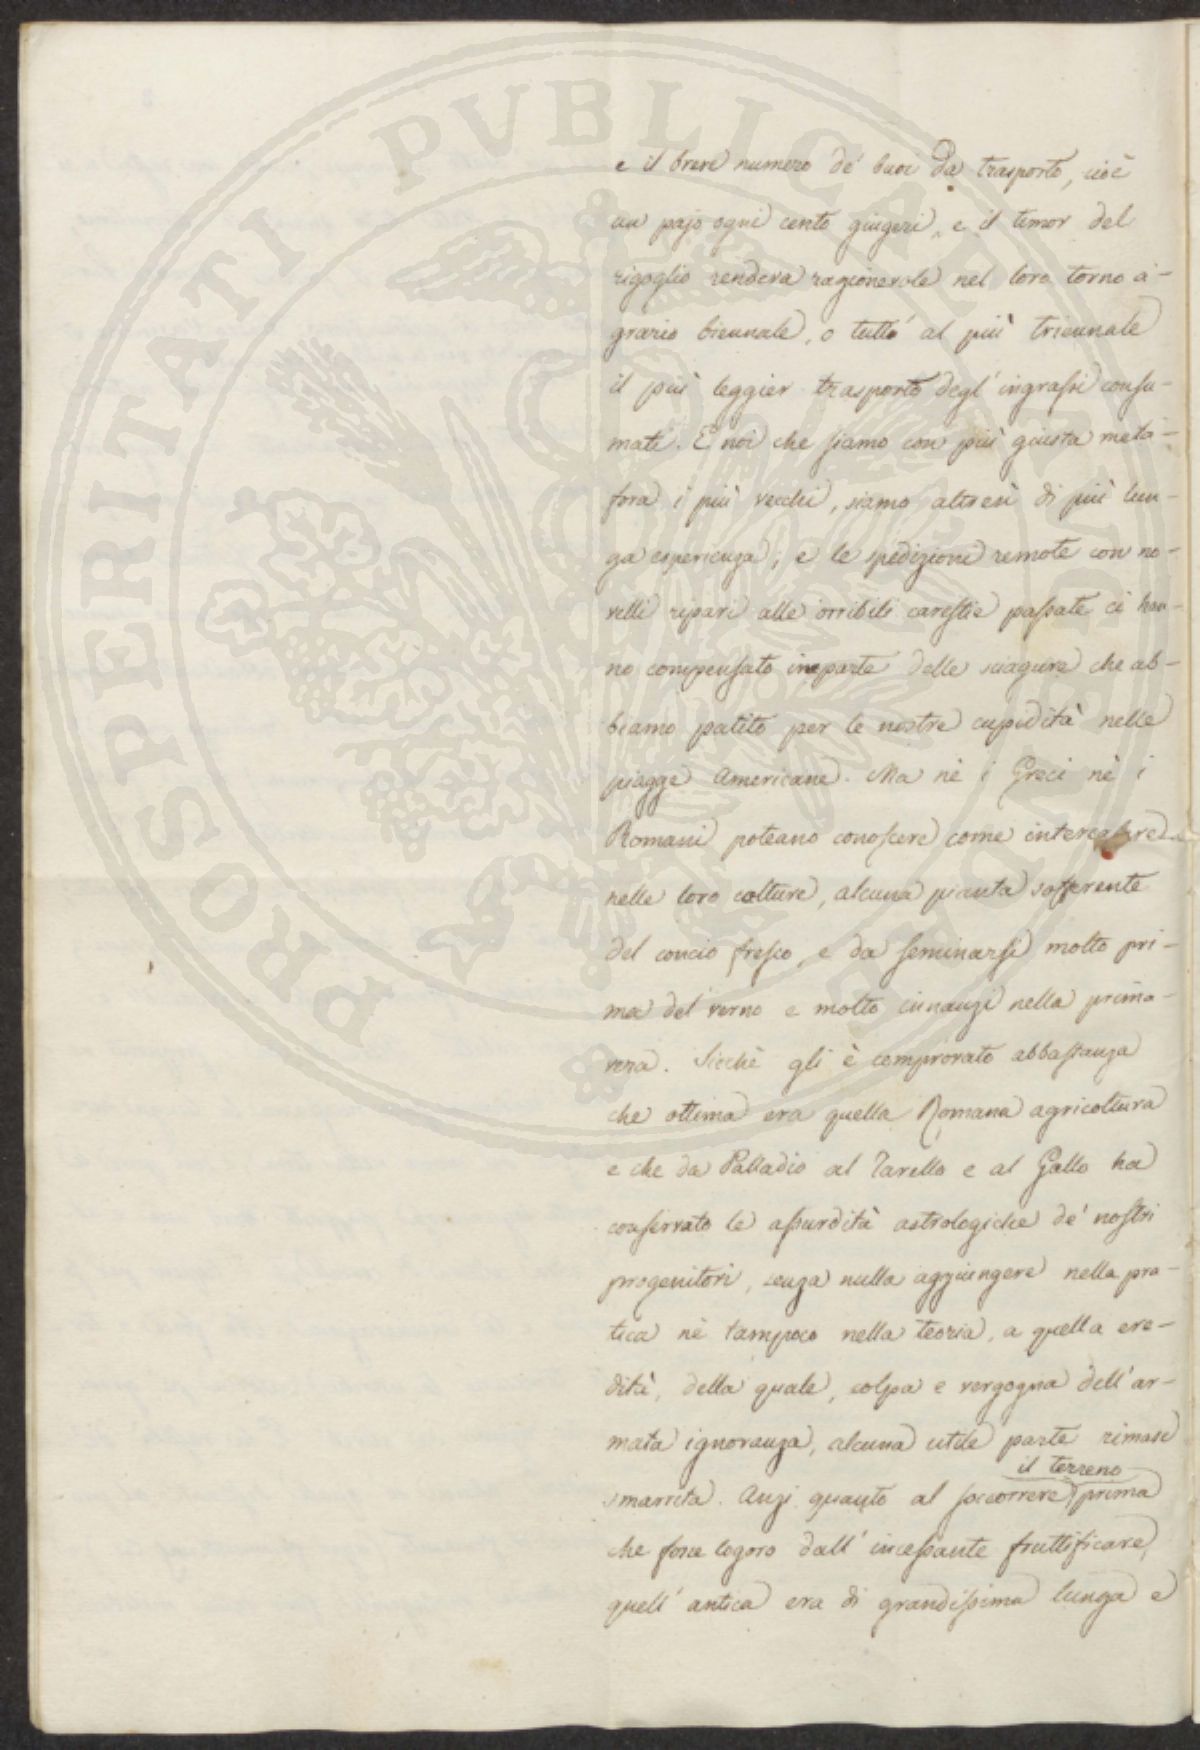 PROSPERITATI PUBLICAE AUGENDAE
e il breve numero de' buoi da trasporto, cioè
un pajo ogni cento giugeri, e il timor del
rigoglio rendeva ragionevole nel loro torno a-
grario biennale, o tutto al più triennale
il più leggier trasporto degl' ingrassi consu-
mati. E noi che siamo con più giusta meta-
fora i più vecchi, siamo altresì di più lun-
ga esperienza; e le spedizioni remote con no-
velli ripari alle orribili carestie passate ci han-
no compensato in parte delle sciagure che ab-
biamo patito per le nostre cupidità nelle
piagge Americane. Ma nè i Greci nè i
Romani poteano conoscere come intercalare
nelle loro colture, alcuna pianta sofferente
del concio fresco, e da seminarsi molto pri-
ma del verno e molto innanzi nella prima-
vera. Sicchè gli è comprovato abbastanza
che ottima era quella Romana agricoltura
e che da Palladio al Tarello e al Gallo ha
conservato le assurdità astrologiche de' nostri
progenitori, senza nulla aggiungere nella pra-
tica nè tampoco nella teoria, a quella ere-
dità, della quale, colpa e vergogna dell' ar-
mata ignoranza, alcuna utile parte rimase
il terreno
smarrita. Anzi quanto al soccorrere prima
che fosse logoro dall' incessante fruttificare,
quell' antica era di grandissima lunga e